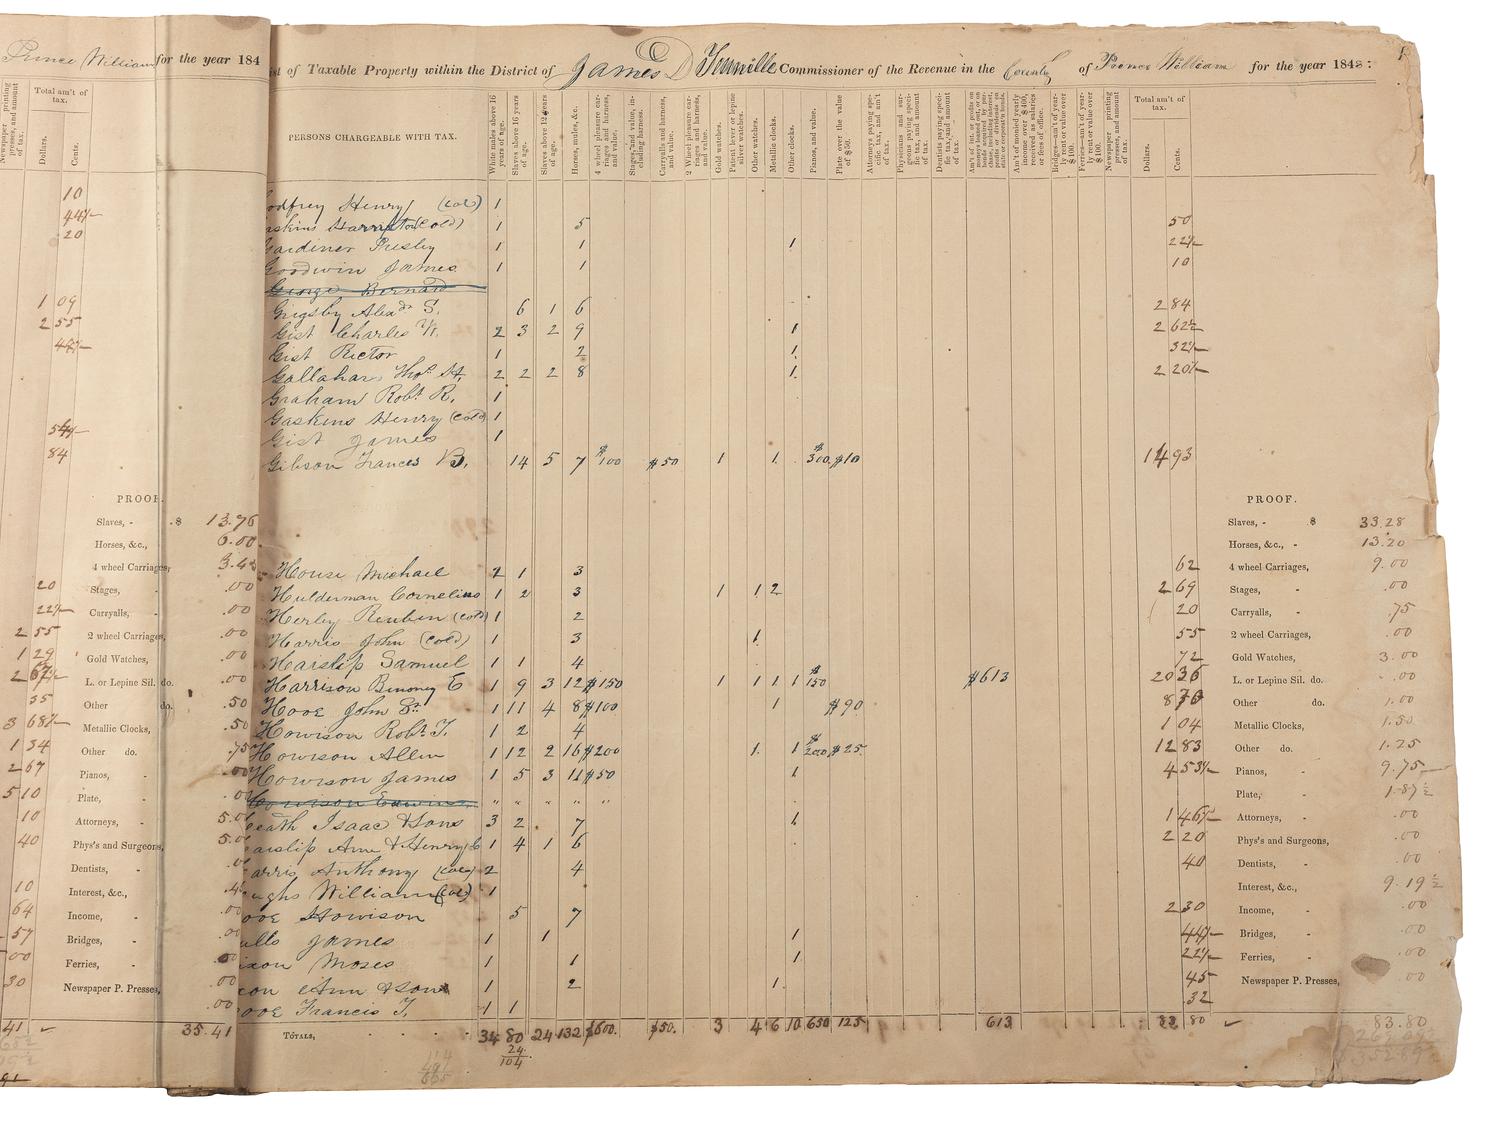 Prince William for the year 184
Newspaper printing presses, and amount of tax.
Total am't of tax.
Dollars. Cents.
10
44½
20
1 09
2 55
44½
54½
84
PROOF.
Slaves, - .$ 13.76
Horses, &c., 6.00
4 wheel Carriages,
20 Stages, - .00
22½ Carryalls, - .00
2 55 2 wheel Carriages, .00
1 29 Gold Watches, .00
2 67½ L. or Lepine Sil. do. .00
35 Other do. .50
3 68½ Metallic Clocks, .50
1 34 Other do. .75
2 67 Pianos, - .00
5 10 Plate, -
10 Attorneys, -
40 Phys's and Surgeons,
Dentists, -
10 Interest, &c.,
64 Income, -
57 Bridges, -
00 Ferries, -
30 Newspaper P. Presses, .00
41 35.41
ist of Taxable Property within the District of James D Tennille Commissioner of the Revenue in the County of Prince William for the year 1848 :
PERSONS CHARGEABLE WITH TAX.
White males above 16 years of age.
Slaves above 16 years of age.
Slaves above 12 years of age.
Horses, mules, &c.
4 wheel pleasure carriages, and harness, and value.
Stages, and value, including harness.
Carryalls and harness, and value.
2 Wheel pleasure carriages and harness, and value.
Gold watches.
Patent lever or lepine silver watches.
Other watches.
Metallic clocks.
Other clocks.
Pianos, and value.
Plate over the value of $50.
Attorneys paying specific tax, and am't of tax.
Physicians and surgeons paying specific tax, and amount of tax.
Dentists paying specific tax, and amount of tax.
Am't of monied yearly income over $400, received as salaries or fees of office.
Bridges—am't of yearly rent or value over $100.
Ferries—am't of yearly rent or value over $100.
Newspaper printing presses, and amount of tax.
Total am't of tax.
Dollars. Cents.
odfrey Henry (col) 1
askins Harrison (cold) 1 5 50
Gardiner Presley 1 1 1 22½
Goodwin James 1 1 10
George Bernard
Grigsby Alexdr S. 6 1 6 2 84
Gist Charles W. 2 3 2 9 1 2 62½
Gist Rector 1 2 1 32½
Gallahan Thos. H. 2 2 2 8 1 2 20½
Graham Robt R. 1
Gaskins Henry (cold) 1
Gist James 1
Gibson Frances B. 14 5 7 $100 $50 1 1 $300 $10 14 93
House Michael 2 1 3 62
Hulderman Cornelius 1 2 3 1 1 2 2 69
Herley Reuben (cold) 1 2 20
Harris John (cold) 1 3 1 55
Haislip Samuel 1 1 4 72
Harrison Benoney E 1 9 3 12 $150 1 1 1 1 $150 $613 20 36
Hooe John Sr 1 11 4 8 $100 1 $90 8 70
Howison Robt T. 1 2 4 1 04
Howison Allen 1 12 2 16 $200 1 1 $200 $25 12 83
Howison James 1 5 3 11 $50 1 4 53½
Howison Edwin " " " " "
Heath Isaac & Sons 3 2 7 1 1 46½
aislip Ann & Henry C 1 4 1 6 2 20
arris Anthony (col) 2 4 40
ughs William (col) 1
ooe Howison 5 7 2 30
ulls James 1 1 1 44½
ixon Moses 1 1 1 22½
on Ann & Son 1 2 1 45
ooe Francis T. 1 1 32
TOTALS, 34 80 24 132 $600. $50. 3 4 6 10 650 125 613 83 80
24
104
PROOF.
Slaves, - $ 33.28
Horses, &c., - 13.20
4 wheel Carriages, 9.00
Stages, - .00
Carryalls, - .75
2 wheel Carriages, .00
Gold Watches, 3.00
L. or Lepine Sil. do. .00
Other do. 1.00
Metallic Clocks, 1.50
Other do. 1.25
Pianos, - 9.75
Plate, - 1.87½
Attorneys, - .00
Phys's and Surgeons, .00
Dentists, - .00
Interest, &c., 9.19½
Income, - .00
Bridges, - .00
Ferries, - .00
Newspaper P. Presses, .00
83.80